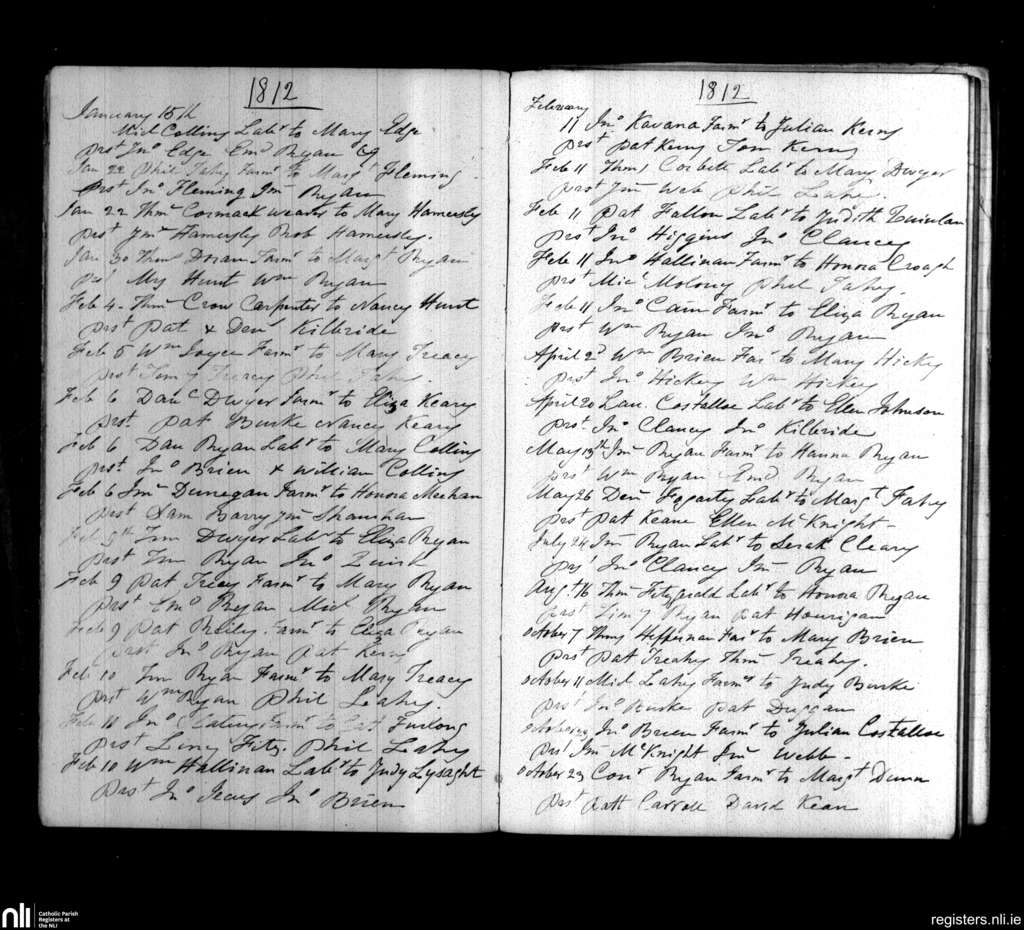 1812
January 15th
Mick Collins Labr to Mary Edge
prst Jno Edge Emd Ryan
Jan 22 Phil Fahy Farmr to Margt Fleming
Prst Jno Fleming Jms Ryan
Jan 22 Thms Cormack weaver to Mary Hamersly
prst Jms Hamersley Prob Hamersley.
Jan 30 Thms Doran Farmr to Margt Ryan
prst Mrs Hunt Wm Ryan
Feb 4 - Thms Crow Carpenter to Nancy Hunt
prst Pat & Danl Kilbride
Feb 5 Wm Joyce Farmr to Mary Treacy
prst Timy Treacy Phil Fahy.
Feb 6 Danl Dwyer Farmr to Eliza Keary
prst. Pat Burke Nancy Keary
Feb 6 Dan Ryan Labr to Mary Collins
prst. Jno Brien & William Collins
Feb 6 Jms Dunegan Farmr to Honora Meehan
prst Dam Barry Jms Shanahan
Feb Tim Dwyer Labr to Eliza Ryan
prst Tim Ryan Jno Quirk
Feb 9 Pat Treacy Farmr to Mary Ryan
prst Emd Ryan Mick Ryan
Feb 9 Pat Reiley Farmr to Eliza Ryan
prst Jno Ryan Pat Kerny
Feb 10 Tim Ryan Farmr to Mary Treacy
prst Wm Ryan Phil Leahy.
Feb 10 Jno Farmr to Furlong
prst Fitz. Phil Lahy
Feb 10 Wm Hallinan Labr to Judy Lysaght
prst Jno Jno Brien
1812
February
11 Jno Kavana Farmr to Julian Kerny
prst Pat Kerny Tom Kerny
Feb 11 Thms Corbett Labr to Mary Dwyer
prst Jms Web Phil Lahy.
Feb 11 Pat Fallon Labr to Judith Quinlan
prst Jno Higgins Jno Clancey
Feb 11 Jno Hallinan Farmr to Honora Croagh
prst Micl Moloney Phil Fahy.
Feb 11 Jno Cain Farmr to Eliza Ryan
prst Wm Ryan Jno Ryan
April 2d Wm Brien Far to Mary Hickey
prst Jno Hickey Wm Hickey
April 20 Lau. Costalloe Labr to Ellen Johnson
prst Jno Clancy Jno Kilbride
May 13th Jms Ryan Farmr to Hanna Ryan
prst Wm Ryan Emd Ryan
May 26 Dens Fogarty Labr to Margt Fahy
prst Pat Keane Ellen McKnight
July 24 Jms Ryan Labr to Serah Cleary
prst Jno Clancy Jms Ryan
Augt 16 Thms Fitzgerald Labr to Honora Ryan
prst Timy Ryan Pat Hourigan
October 7 Thms Heffernan Far to Mary Brien
prst Pat Treahy Thms Treahy.
October 11 Mick Leahy Farmr to Judy Burke
prst Jno Burke Pat Duggan
October Jno Brien Farmr to Julian Costalloe
prst Jms McKnight Jms Webb
October 29 Conr Ryan Farmr to Margt Dunn
prst Patt Carroll David Kean
nli
Catholic Parish
Registers at
the NLI
registers.nli.ie